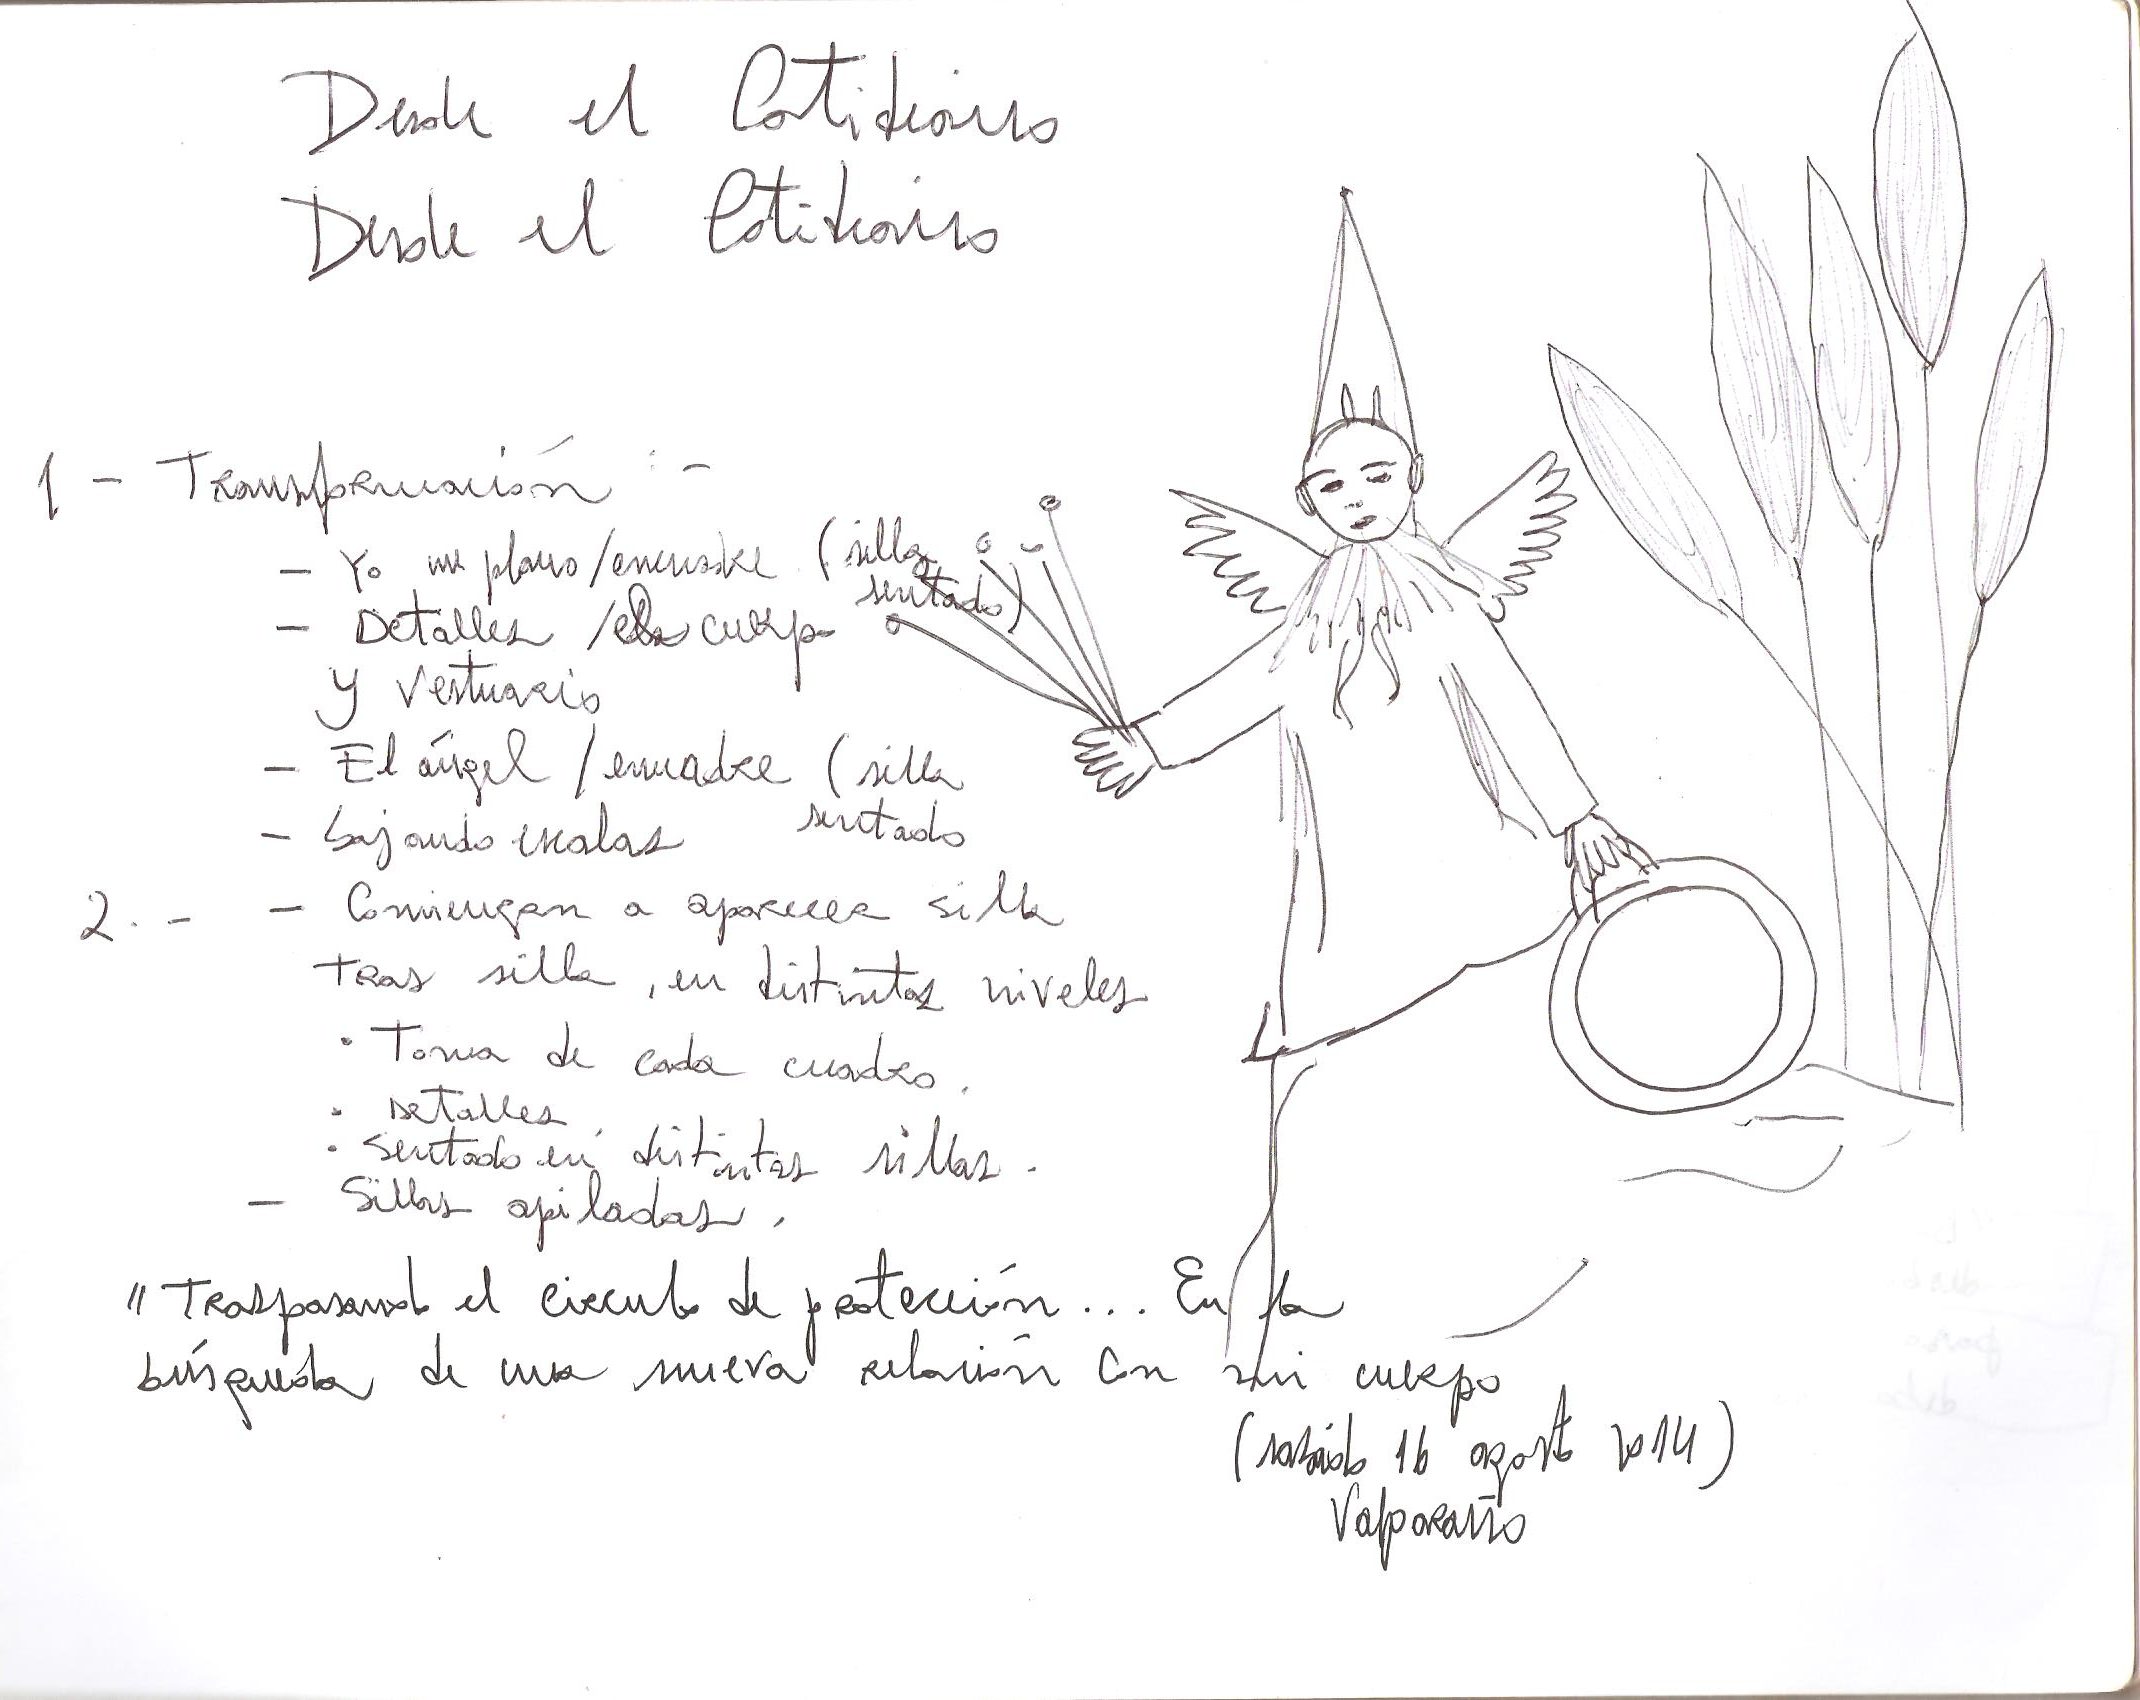 Desde el Cotidiano
Desde el Cotidiano
1 - Transformación : -
- Yo un plano/encuadre (silla
sentado)
- Detalles / cuerpo
y vestuario
- El ángel / encuadre (silla
sentado
- bajando escalas
2. - - Comienzan a aparecer silla
tras silla, en distintos niveles
· Toma de cada cuadro.
· Detalles
· sentado en distintas sillas.
- Sillas apiladas.
"Traspasando el circulo de protección... En la
búsqueda de una nueva relación con mi cuerpo
(sabado 16 agosto 2014)
Valparaíso